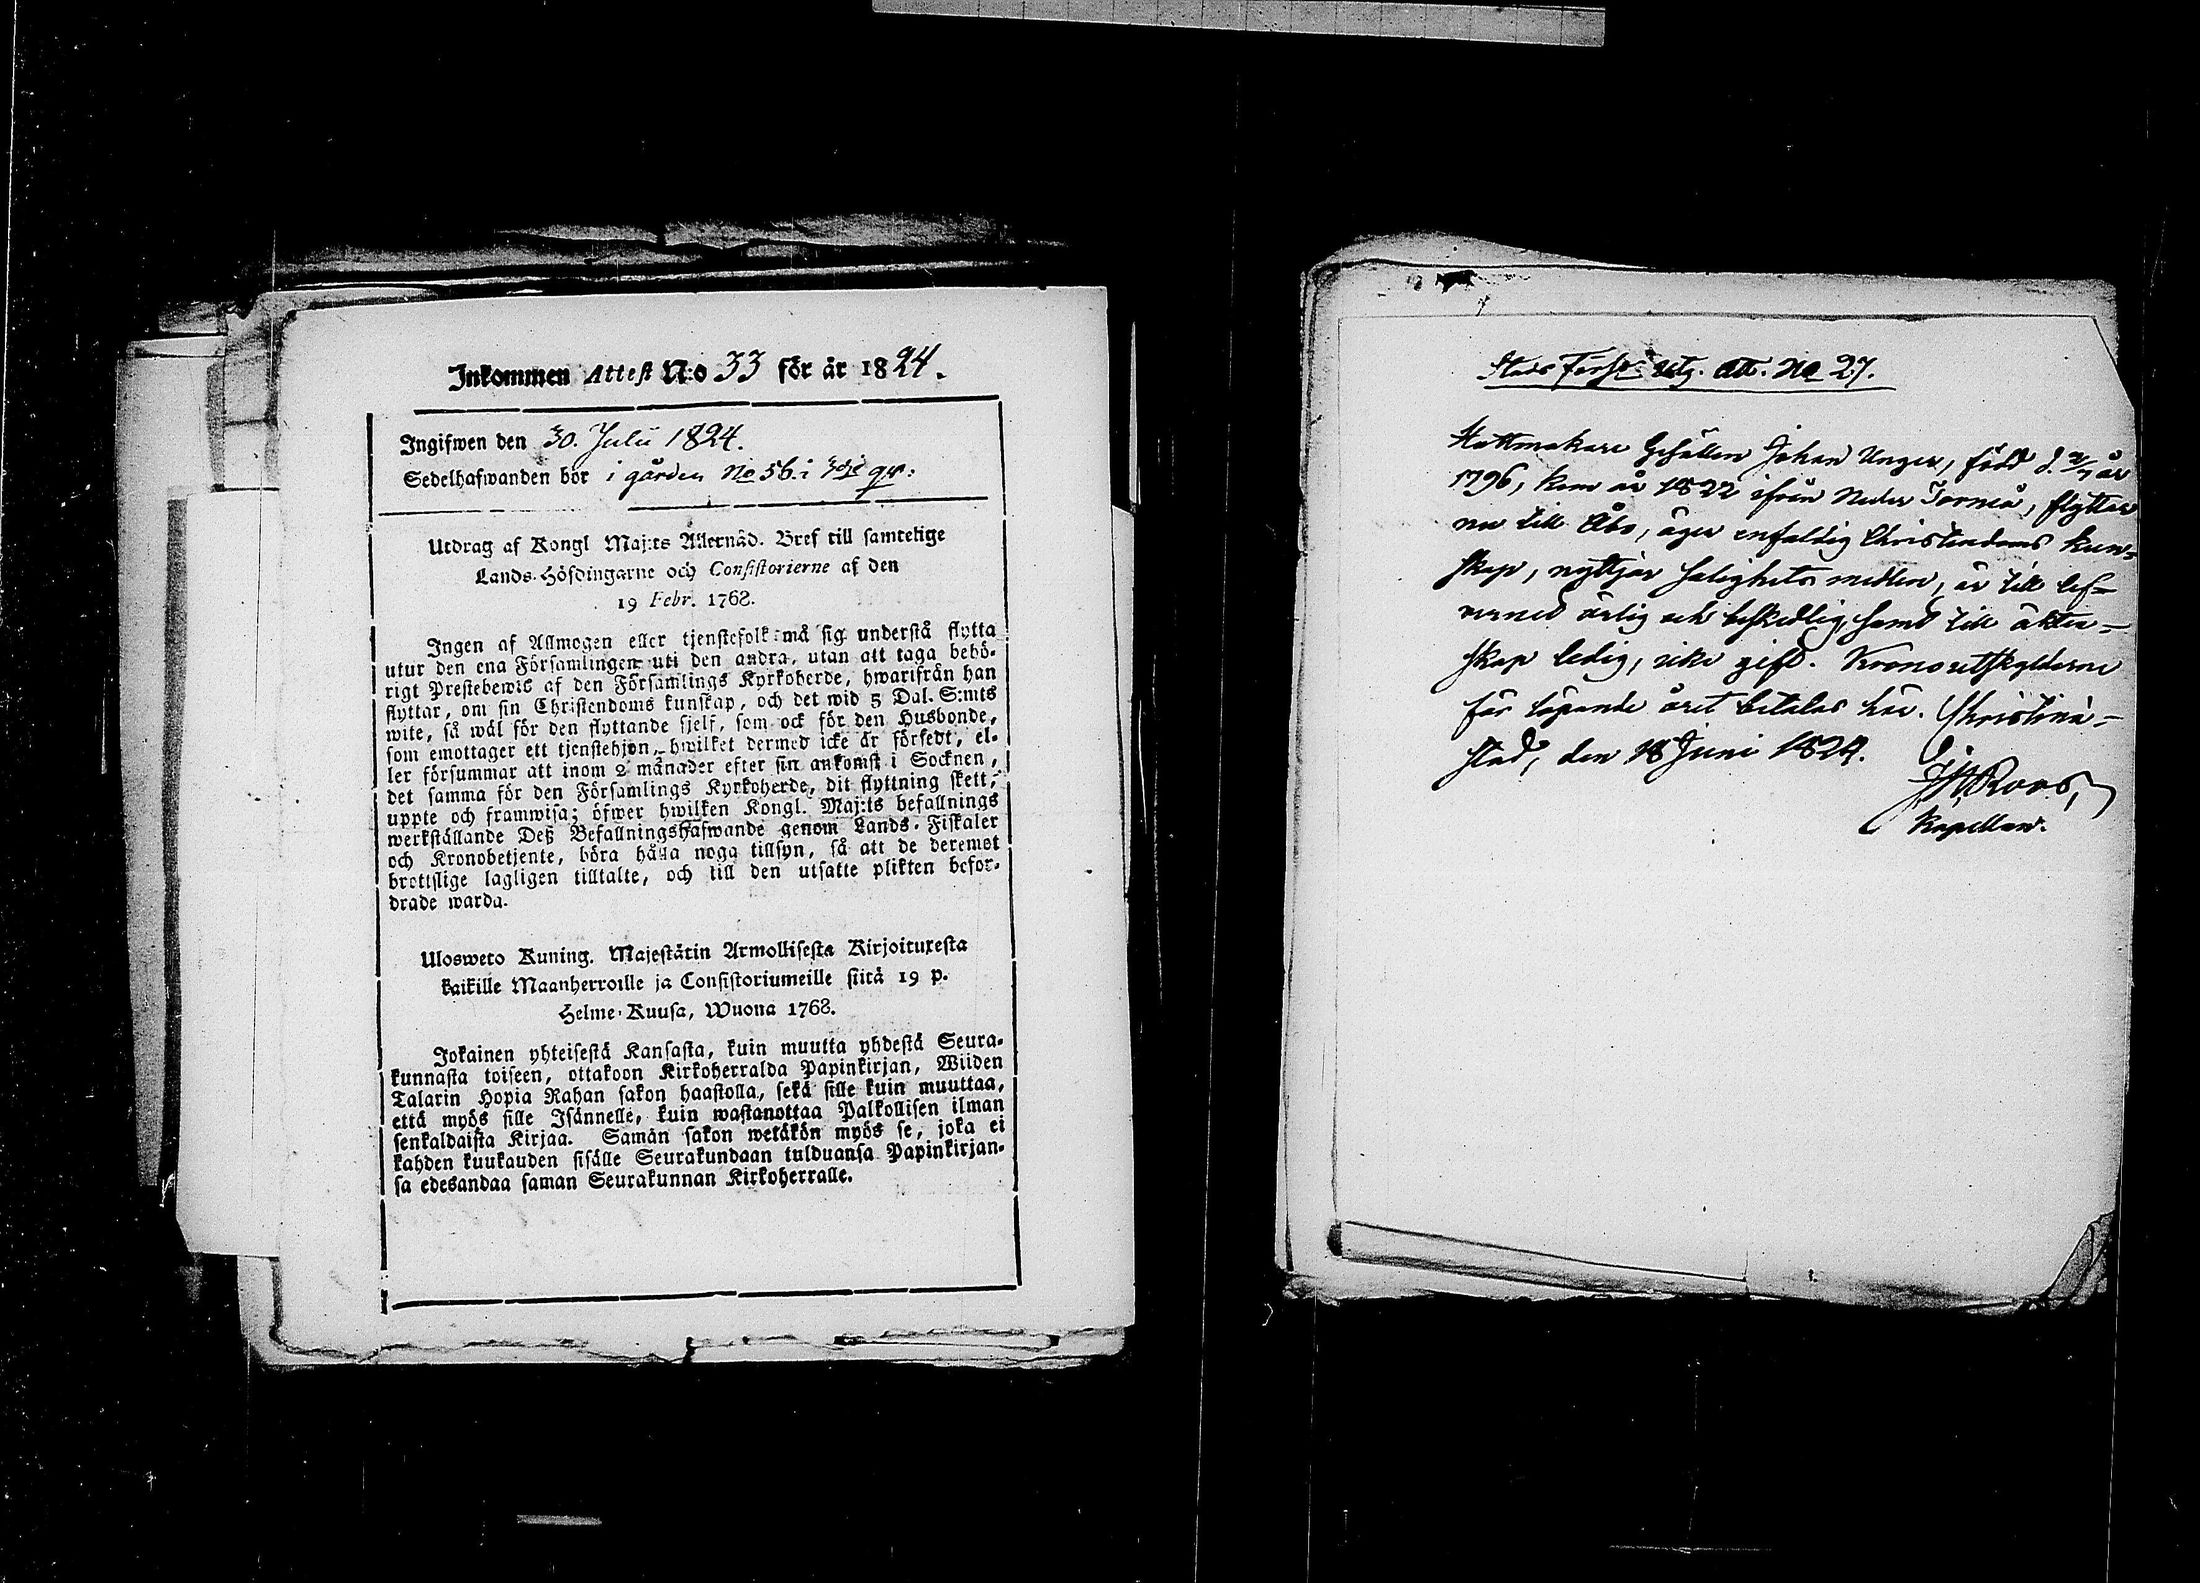 Inkommen Attest N:o 33 för år 1824.
Ingifwen den 30. Julii 1824.
Sedelhafwanden bor i gården No 56. i qv:
Utdrag af Kongl Maj:ts Allernåd. Bref till samtelige
Lands-Höfdingarne och Consistorierne af den
19 Febr. 1768.
Ingen af Allmogen eller tjenstefolk må sig understå flytta
utur den ena Församlingen uti den andra, utan att taga behö-
rigt Prestebewis af den Församlings Kyrkoherde, hwarifrån han
flyttar, om sin Christendoms kunskap, och det wid 5 Dal. S:mts
wite, så wäl för den flyttande sjelf, som ock för den Husbonde,
som emottager ett tjenstehjon, hwilket dermed icke är försedt, el-
ler försummar att inom 2 månader efter sin ankomst i Socknen,
det samma för den Församlings Kyrkoherde, dit flyttning skett,
uppte och framwisa; öfwer hwilken Kongl. Maj:ts befallnings
werkställande Deß Befallningshafwande genom Lands-Fiskaler
och Kronobetjente, böra hålla noga tillsyn, så att de deremot
brottslige lagligen tilltalte, och till den utsatte plikten befor-
drade warda.
Ulosweto Kuning. Majestätin Armollisesta Kirjoituxesta
kaikille Maanherroille ja Consistoriumeille siitä 19 p.
Helme-Kuusa, Wuonna 1768.
Jokainen yhteisestä Kansasta, kuin muutta yhdestä Seura-
kunnasta toiseen, ottakoon Kirkoherralda Papinkirjan, Wiiden
Talarin Hopia Rahan sakon haastolla, sekä sille kuin muuttaa,
että myös sille Isännelle, kuin wastanottaa Palkollisen ilman
senkaldaista Kirjaa. Samän sakon wetäkön myös se, joka ei
kahden kuukauden sisälle Seurakundaan tulduansa Papinkirjan-
sa edesandaa saman Seurakunnan Kirkoherralle.
Förs:s utg. att. No 27.
Hattmakare Gesällen Johan Unger, född d. år
1796, kom år 1822 ifrån Neder Torneå, flyttar
nu till Åbo, äger enfaldig Christendoms kun-
skap, nyttjar salighets medlen, är till lef-
verned ärlig och beskedlig samt till äkten-
skap ledig, icke gift. Kronoutskylderne
för löpande året betalas här. Christinæ-
stad, den 18 Juni 1824.
Roos,
Kapellan.